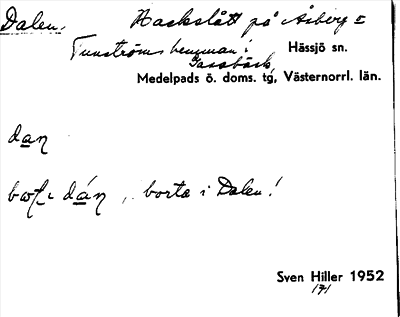 Dalen. Hackslått på Åsberg I
Tunströms hemman i Hässjö sn.
Gassbäck,
Medelpads ö. doms. tg, Västernorrl. län.
daŋ
i dáŋ, borta i Dalen!
Sven Hiller 1952
171